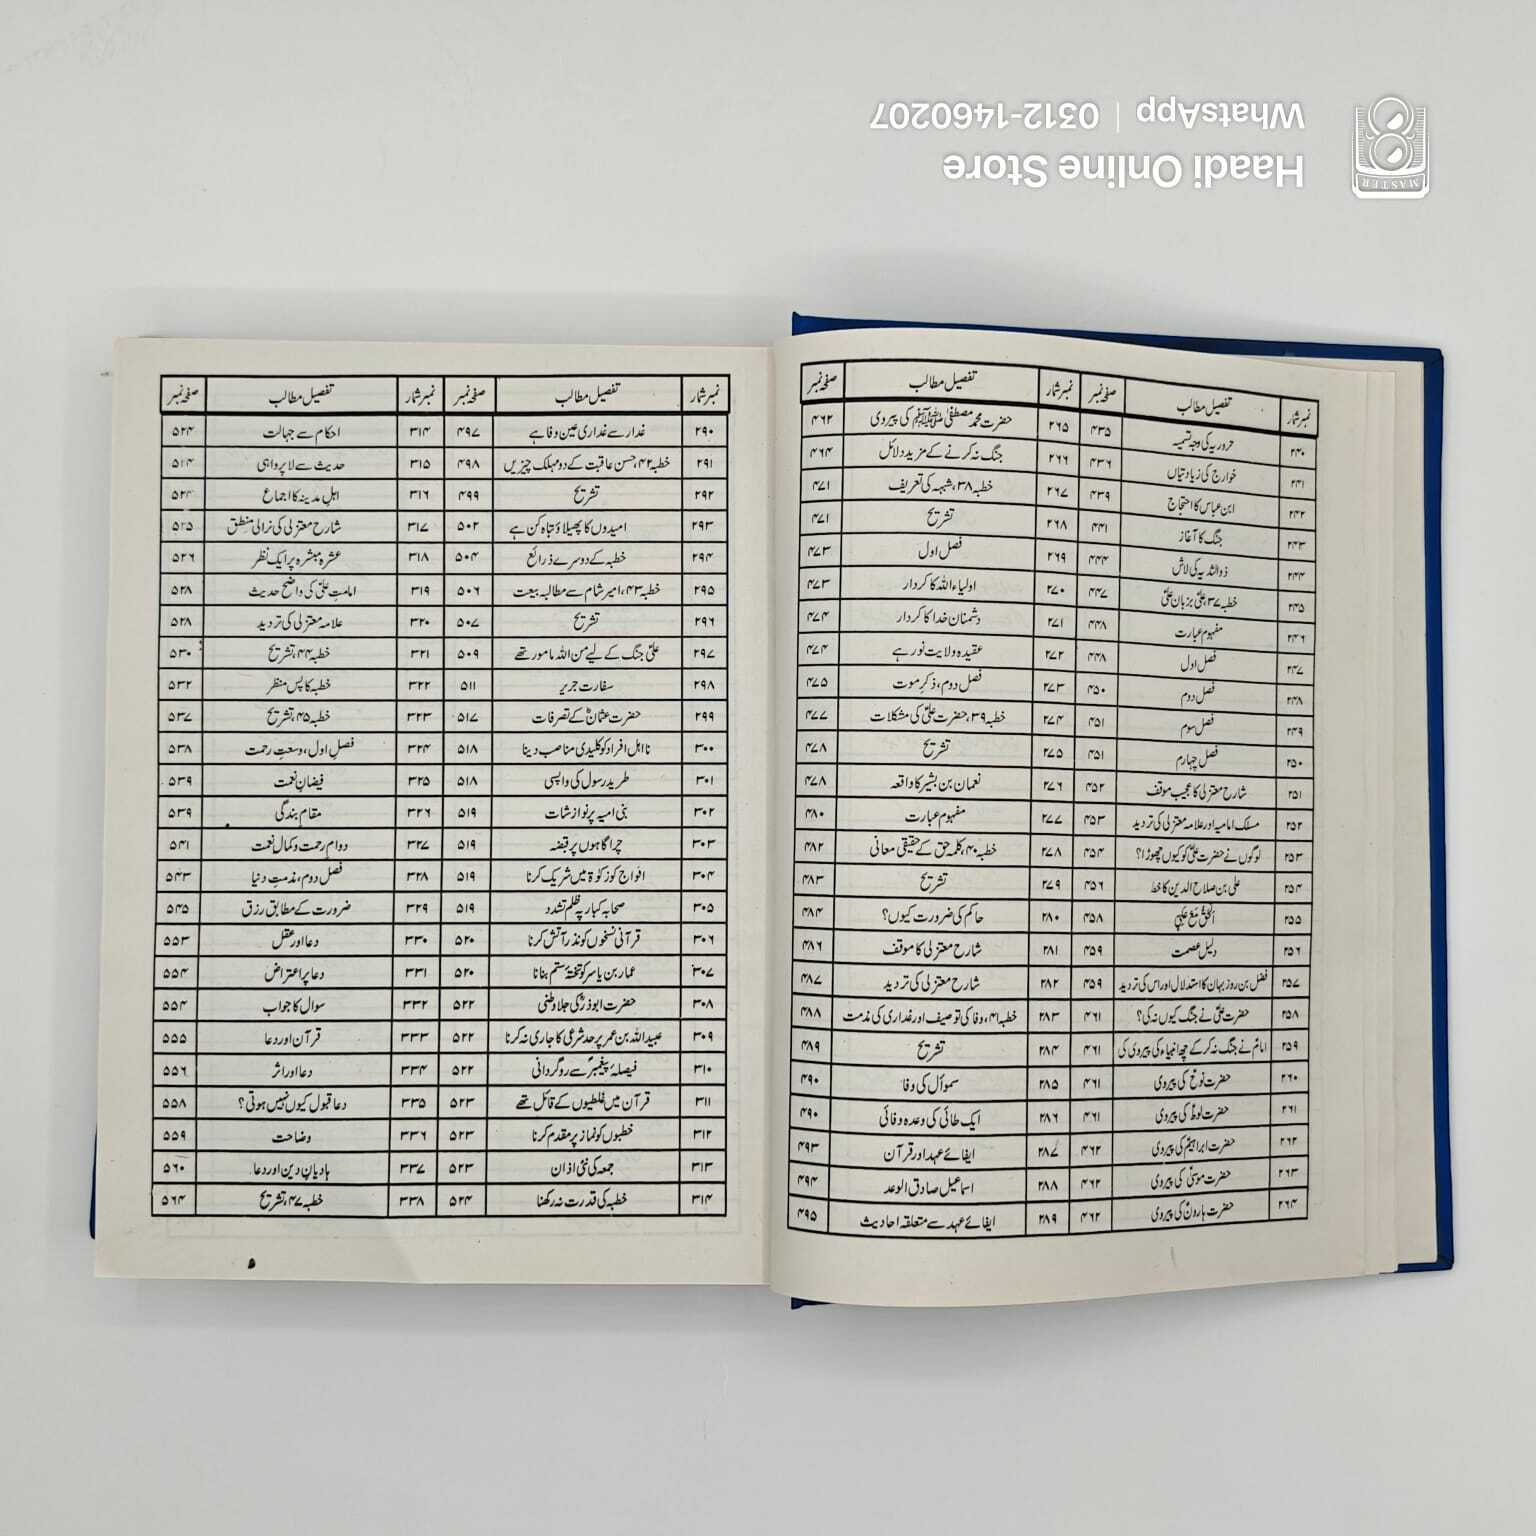 Haadi Online Store
WhatsApp | 0312-1460207
MASTER
نمبر شمار تفصیل مطالب صفحہ نمبر نمبر شمار تفصیل مطالب صفحہ نمبر
۲۴۰ حروریہ کی وجہ تسمیہ ۴۳۵ ۲۶۵ حضرت محمد مصطفیٰ ﷺ کی پیروی ۴۶۲
۲۴۱ خوارج کی زیادتیاں ۴۳۶ ۲۶۶ جنگ نہ کرنے کے مزید دلائل ۴۶۴
۲۴۲ ابن عباس کا احتجاج ۴۳۹ ۲۶۷ خطبہ ۳۸، شبہہ کی تعریف ۴۷۱
۲۴۳ جنگ کا آغاز ۴۴۱ ۲۶۸ تشریح ۴۷۱
۲۴۴ ذوالثدیہ کی لاش ۴۴۴ ۲۶۹ فصل اول ۴۷۳
۲۴۵ خطبہ ۳۷، علیؑ بزبان علیؑ ۴۴۷ ۲۷۰ اولیاء اللہ کا کردار ۴۷۳
۲۴۶ مفہوم عبارت ۴۴۸ ۲۷۱ دشمنان خدا کا کردار ۴۷۴
۲۴۷ فصل اول ۴۴۸ ۲۷۲ عقیدہ ولایت نور ہے ۴۷۴
۲۴۸ فصل دوم ۴۵۰ ۲۷۳ فصل دوم، ذکرِ موت ۴۷۵
۲۴۹ فصل سوم ۴۵۱ ۲۷۴ خطبہ ۳۹، حضرت علیؑ کی مشکلات ۴۷۷
۲۵۰ فصل چہارم ۴۵۱ ۲۷۵ تشریح ۴۷۸
۲۵۱ شارح معتزلی کا عجیب موقف ۴۵۲ ۲۷۶ نعمان بن بشیر کا واقعہ ۴۷۸
۲۵۲ مسلک امامیہ اور علامہ معتزلی کی تردید ۴۵۳ ۲۷۷ مفہوم عبارت ۴۸۰
۲۵۳ لوگوں نے حضرت علیؑ کو کیوں چھوڑا؟ ۴۵۴ ۲۷۸ خطبہ ۴۰، کلمہ حق کے حقیقی معانی ۴۸۲
۲۵۴ علی بن صلاح الدین کا خط ۴۵۶ ۲۷۹ تشریح ۴۸۳
۲۵۵ اَلْحَقُّ مَعَ عَلِیٍّ ۴۵۸ ۲۸۰ حاکم کی ضرورت کیوں؟ ۴۸۴
۲۵۶ دلیل عصمت ۴۵۹ ۲۸۱ شارح معتزلی کا موقف ۴۸۶
۲۵۷ فضل بن روزبہان کا استدلال اور اس کی تردید ۴۵۹ ۲۸۲ شارح معتزلی کی تردید ۴۸۷
۲۵۸ حضرت علیؑ نے جنگ کیوں نہ کی؟ ۴۶۱ ۲۸۳ خطبہ ۴۱، وفا کی توصیف اور غداری کی مذمت ۴۸۸
۲۵۹ امامؑ نے جنگ نہ کر کے چھ انبیاء کی پیروی کی ۴۶۱ ۲۸۴ تشریح ۴۸۹
۲۶۰ حضرت نوحؑ کی پیروی ۴۶۱ ۲۸۵ سموأل کی وفا ۴۹۰
۲۶۱ حضرت لوطؑ کی پیروی ۴۶۱ ۲۸۶ ایک طائی کی وعدہ وفائی ۴۹۰
۲۶۲ حضرت ابراہیمؑ کی پیروی ۴۶۲ ۲۸۷ ایفائے عہد اور قرآن ۴۹۳
۲۶۳ حضرت موسیٰؑ کی پیروی ۴۶۲ ۲۸۸ اسماعیل صادق الوعد ۴۹۴
۲۶۴ حضرت ہارونؑ کی پیروی ۴۶۲ ۲۸۹ ایفائے عہد سے متعلقہ احادیث ۴۹۵
نمبر شمار تفصیل مطالب صفحہ نمبر نمبر شمار تفصیل مطالب صفحہ نمبر
۲۹۰ غدار سے غداری عین وفا ہے ۴۹۷ ۳۱۴ احکام سے جہالت ۵۲۴
۲۹۱ خطبہ ۴۲، حسن عاقبت کے دو مہلک چیزیں ۴۹۸ ۳۱۵ حدیث سے لاپرواہی ۵۲۴
۲۹۲ تشریح ۴۹۹ ۳۱۶ اہل مدینہ کا اجماع ۵۲۴
۲۹۳ امیدوں کا پھیلاؤ تباہ کن ہے ۵۰۲ ۳۱۷ شارح معتزلی کی نرالی منطق ۵۲۵
۲۹۴ خطبہ کے دوسرے ذرائع ۵۰۴ ۳۱۸ عشرہ مبشرہ پر ایک نظر ۵۲۶
۲۹۵ خطبہ ۴۳، امیر شام سے مطالبہ بیعت ۵۰۶ ۳۱۹ امامتِ علیؑ کی واضح حدیث ۵۲۸
۲۹۶ تشریح ۵۰۷ ۳۲۰ علامہ معتزلی کی تردید ۵۲۸
۲۹۷ علیؑ جنگ کے لیے من اللہ مامور تھے ۵۰۹ ۳۲۱ خطبہ ۴۴، تشریح ۵۳۰
۲۹۸ سفارت جریر ۵۱۱ ۳۲۲ خطبہ کا پس منظر ۵۳۲
۲۹۹ حضرت عثمانؓ کے تصرفات ۵۱۷ ۳۲۳ خطبہ ۴۵، تشریح ۵۳۷
۳۰۰ نااہل افراد کو کلیدی مناصب دینا ۵۱۸ ۳۲۴ فصلِ اول، وسعتِ رحمت ۵۳۸
۳۰۱ طرید رسول کی واپسی ۵۱۸ ۳۲۵ فیضانِ نعمت ۵۳۹
۳۰۲ بنی امیہ پر نوازشات ۵۱۹ ۳۲۶ مقامِ بندگی ۵۳۹
۳۰۳ چراگاہوں پر قبضہ ۵۱۹ ۳۲۷ دوامِ رحمت و کمال نعمت ۵۴۱
۳۰۴ افواج کو زکوٰۃ میں شریک کرنا ۵۱۹ ۳۲۸ فصل دوم، مذمتِ دنیا ۵۴۳
۳۰۵ صحابہ کبار پہ ظلم تشدد ۵۱۹ ۳۲۹ ضرورت کے مطابق رزق ۵۴۵
۳۰۶ قرآنی نسخوں کو نذر آتش کرنا ۵۲۰ ۳۳۰ دعا اور عقل ۵۵۳
۳۰۷ عمار بن یاسر کو تختۂ ستم بنانا ۵۲۰ ۳۳۱ دعا پر اعتراض ۵۵۴
۳۰۸ حضرت ابوذرؓ کی جلاوطنی ۵۲۲ ۳۳۲ سوال کا جواب ۵۵۴
۳۰۹ عبید اللہ بن عمر پر حد شرعی کا جاری نہ کرنا ۵۲۲ ۳۳۳ قرآن اور دعا ۵۵۵
۳۱۰ فیصلۂ پیغمبرؐ سے روگردانی ۵۲۲ ۳۳۴ دعا اور اثر ۵۵۶
۳۱۱ قرآن میں غلطیوں کے قائل تھے ۵۲۳ ۳۳۵ دعا قبول کیوں نہیں ہوتی؟ ۵۵۸
۳۱۲ خطبوں کو نماز پر مقدم کرنا ۵۲۳ ۳۳۶ وضاحت ۵۵۹
۳۱۳ جمعہ کی نئی اذان ۵۲۳ ۳۳۷ ہادیانِ دین اور دعا ۵۶۰
۳۱۴ خطبہ کی قدرت نہ رکھنا ۵۲۴ ۳۳۸ خطبہ ۴۷، تشریح ۵۶۴